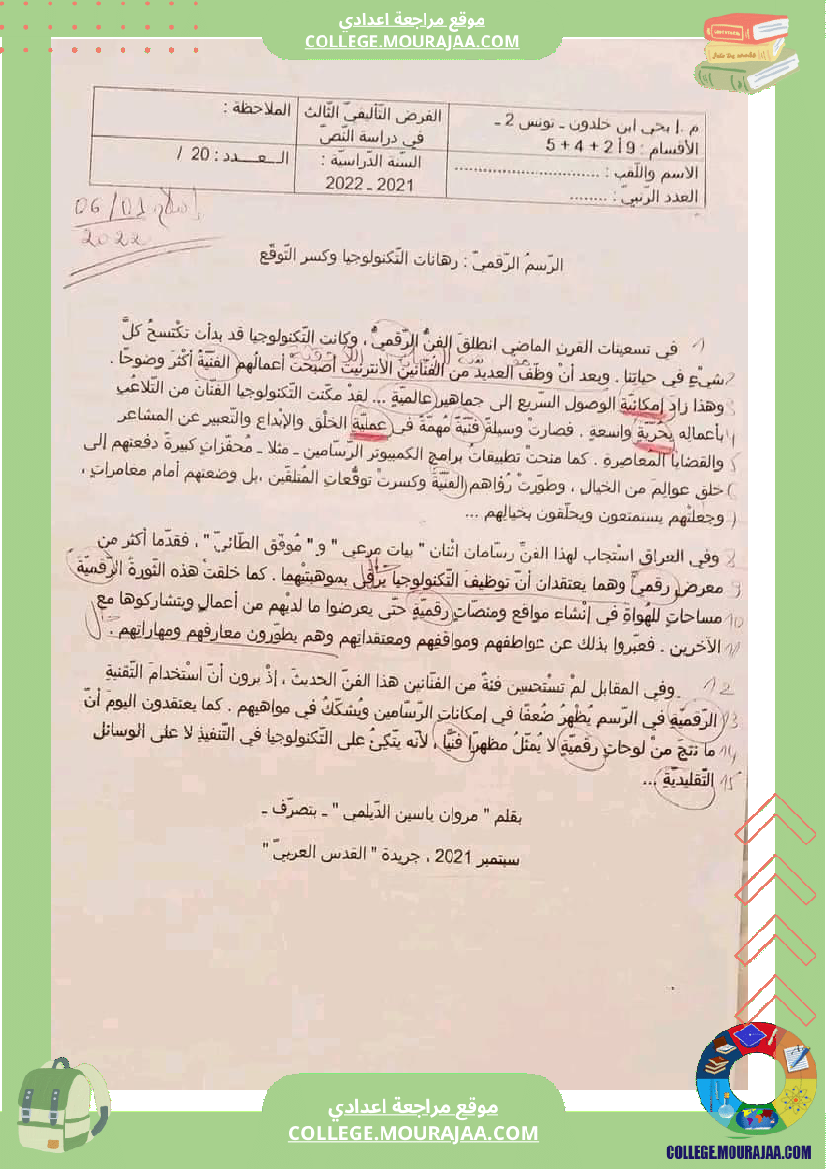 موقع مراجعة اعدادي
COLLEGE.MOURAJAA.COM
م . إ يحي ابن خلدون ـ تونس 2 ـ
الأقسام : 9 أ 2 + 4 + 5
الاسم واللّقب : ..............................
العدد الرّتبيّ : ........
الفرض التّأليفيّ الثّالث
في دراسة النّصّ
السّنة الدّراسيّة :
2021 ـ 2022
الملاحظة :
العـــدد : 20 /
إصلاح 06/01
2022
الرّسمُ الرّقميّ : رهانات التّكنولوجيا وكسر التّوقّع
1 في تسعينات القرنِ الماضي انطلقَ الفنُّ الرّقميُّ ، وكانتِ التّكنولوجيا قد بدأت تكْتسحُ كلَّ
2 شيْءٍ في حياتِنا . وبعد أنْ وظّفَ العديدُ من الفنّانينَ الأنترنيتَ أصْبحتْ أعمالُهم الفنّيّةُ أكْثرَ وضوحًا .
3 وهذا زادَ إمكانيّةَ الوصول السّريع إلى جماهيرَ عالميّةٍ ... لقدْ مكّنت التّكنولوجيا الفنّانَ من التّلاعُبِ
4 بأعمالِه بحُرّيّةٍ واسعةٍ . فصارتْ وسيلةً فنّيّةً مُهمّةً في عمليّةِ الخلْق والإبداع والتّعبير عن المشاعر
5 والقضايا المُعاصرةِ . كما منحتْ تطبيقاتُ برامج الكمبيوتر الرّسّامين ـ مثلا ـ مُحفّزاتٍ كبيرةً دفعتهم إلى
6 خلق عوالِمَ من الخيال ، وطوّرتْ رُؤاهم الفنّيّةَ وكسرتْ توقُّعاتِ المُتلقّين ،بل وضعتهم أمام مغامراتٍ ،
7 وجعلتْهم يستمتعون ويحلّقون بخيالِهم ...
8 وفي العراق اسْتجاب لهذا الفنِّ رسّامان اثْنان " بيات مرعي " و " مُوفّق الطّائيّ " ، فقدّما أكثر من
9 معرضٍ رقميٍّ وهما يعتقدان أن توظيفَ التّكنولوجيا يَرْقى بموهبتيْهما . كما خلقتْ هذه الثّورةُ الرّقميّةُ
10 مساحاتٍ للهُواةِ في إنْشاء مواقع ومنصّاتٍ رقميّةٍ حتّى يعرضوا ما لديْهم من أعمالٍ ويتشاركوها مع
11 الآخرين . فعبّروا بذلك عن عواطفهم ومواقفِهم ومعتقداتِهم وهم يطوّرون معارفهم ومهاراتِهم .
12 وفي المقابل لمْ تسْتحسِن فئةٌ من الفنّانين هذا الفنّ الحديثَ ، إذْ يرون أنّ اسْتخدامَ التّقنية
13 الرّقميّةِ في الرّسم يُظْهِرُ ضُعفًا في إمكاناتِ الرّسّامين ويُشكّكُ في مواهبهم . كما يعتقدون اليومَ أنّ
14 ما نتجَ منْ لوحاتٍ رقميّةٍ لا يُمثّلُ مظهرًا فنّيًّا ، لأنّه يتّكِئُ على التّكنولوجيا في التّنفيذِ لا على الوسائل
15 التّقليديّةِ ...
بقلم " مروان ياسين الدّيلمي " ـ بتصرّف ـ
سبتمبر 2021 ، جريدة " القدس العربيّ "
موقع مراجعة اعدادي
COLLEGE.MOURAJAA.COM
COLLEGE.MOURAJAA.COM